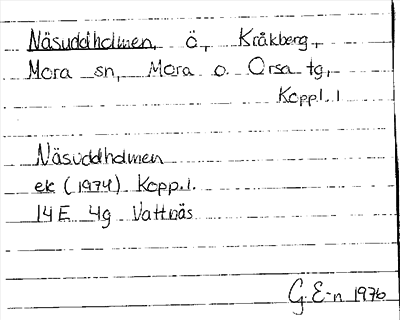 Näsuddholmen, ö, Kråkberg,
Mora sn, Mora o. Orsa tg,
Koppl. l
Näsuddholmen
ek (1974) Kopp.l.
14E 4g Vattnäs
G. E-n 1976